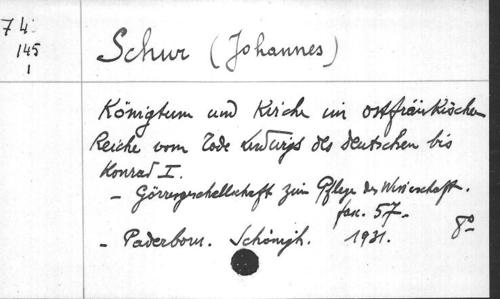 74
145
1
Schur (Johannes)
Königtum und Kirche im ostfränkischen
Reiche vom Tode Ludwigs des Deutschen bis
Konrad I.
- Görresgesellschaft zur Pflege der Wissenschaft.
fasc. 57-
- Paderborn. Schöningh. 1931. 8°